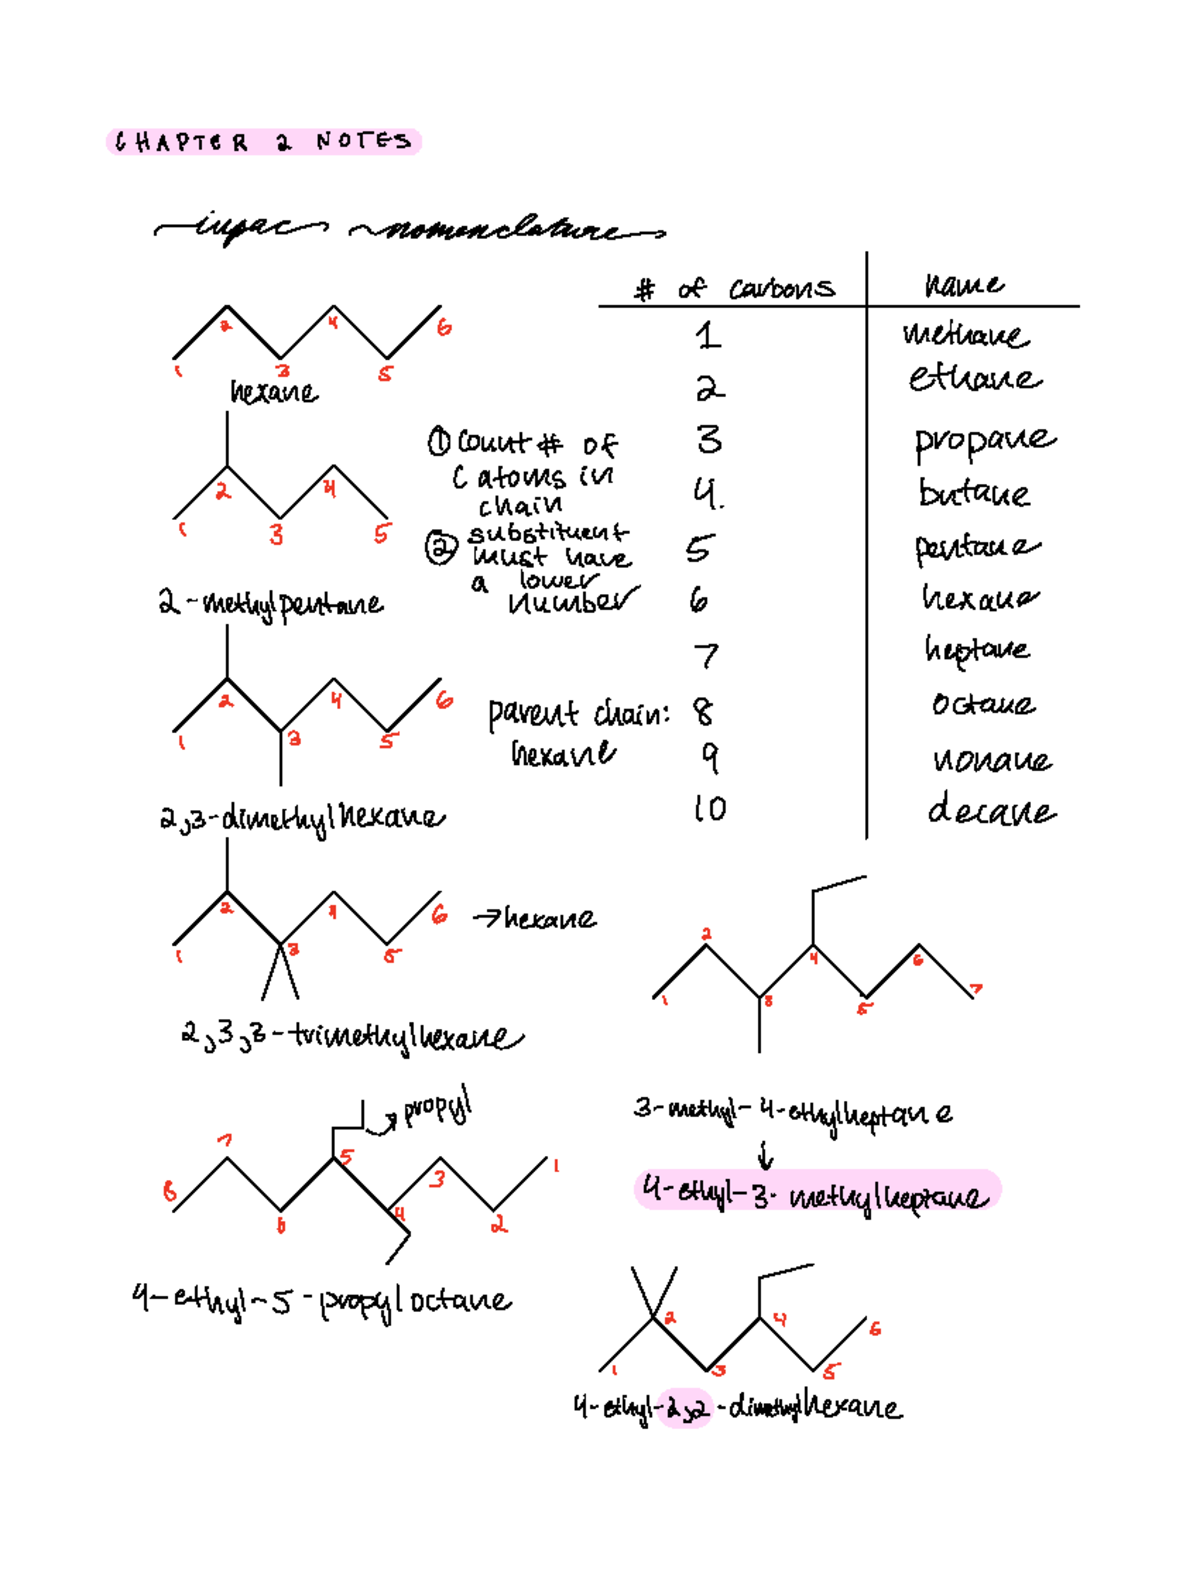 CHAPTER 2 NOTES
iupac nomenclature
# of carbons name
1 methane
2 ethane
3 propane
4. butane
5 pentane
6 hexane
7 heptane
8 octane
9 nonane
10 decane
2 4 6
1 3 5
hexane
① count # of
C atoms in
chain
② substituent
must have
a lower
number
2 4
1 3 5
2-methylpentane
2 4 6
1 3 5
parent chain:
hexane
2,3-dimethylhexane
2 4 6
1 3 5
→hexane
2,3,3-trimethylhexane
2 4 6 7
1 3 5
3-methyl-4-ethylheptane
↓
4-ethyl-3-methylheptane
propyl
7 5 3 1
8 6 4 2
4-ethyl-5-propyloctane
2 4 6
1 3 5
4-ethyl-2,2-dimethylhexane